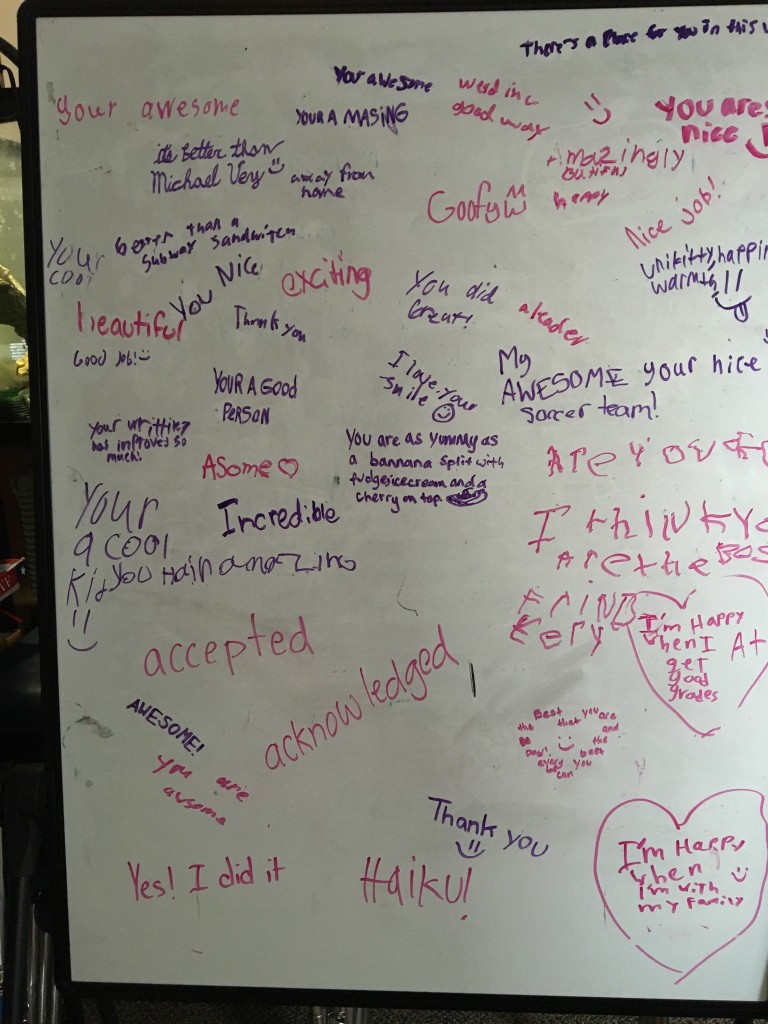 There's a Place for You in this
Your awesome
Your awesome
YOUR A MASING
good way
You are
nice
its better than
Michael Very
away from
home
Amazingly
Happy
Goofy
Nice job!
Your
cool
better than a
Subway Sandwitch
You Nice
exciting
You did
Great!
unikitty, happin
warmth,
beautiful
Thank you
a leader
Good Job!
I love your
smile
My
AWESOME your nice
Soccer team!
YOUR A GOOD
PERSON
Your writting
has improved so
much!
Asome
You are as yummy as
a bannana split with
fudge icecream and a
cherry on top
Are you
Your
a cool
Kid
Incredible
You Hair amazing
I think yo
Are the
Frind
Eery
I'm Happy
when I
get
good
grades
A+
accepted
acknowledged
AWESOME!
You are
awsome
Best that you are
the best
every
you
can
Thank you
Yes! I did it
Haiku!
I'm Happy
when
I'm with
my Family